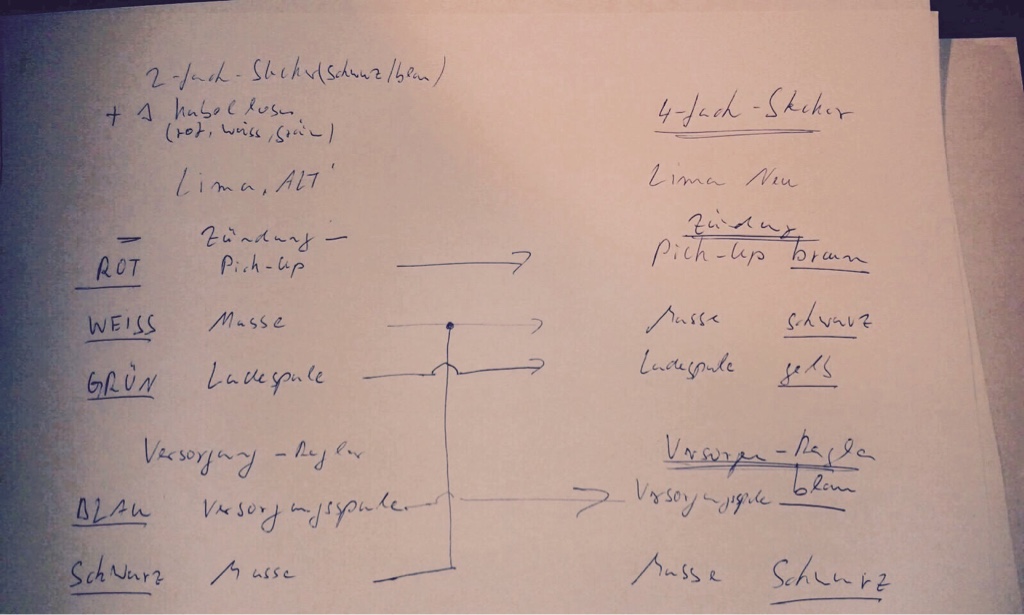 2-fach-Stecker (schwarz/blau)
+ 3 Kabel lose
(rot, weiss, grün)
4-fach-Stecker
Lima, ALT
Lima Neu
Zündung
Zündung
ROT Pick-Up
Pick-Up braun
WEISS Masse
Masse schwarz
GRÜN Ladespule
Ladespule gelb
Versorgung - Regler
Versorgen - Regler
BLAU Versorgungsspule
Versorgungsspule blau
Schwarz Masse
Masse Schwarz